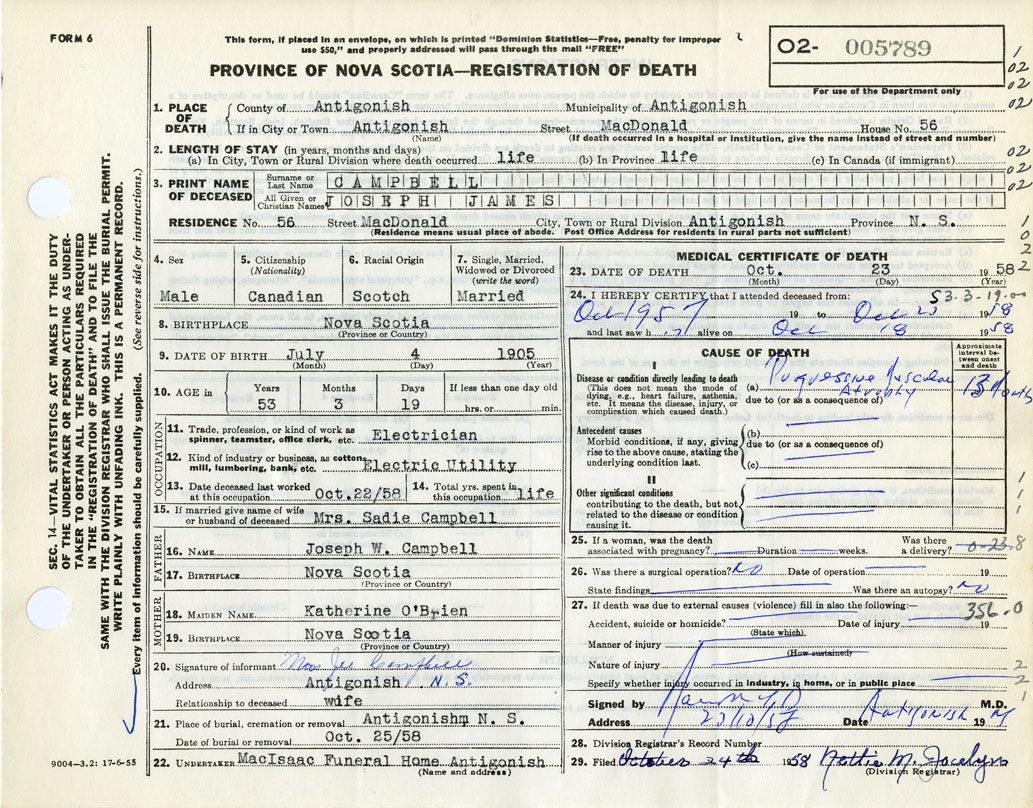 FORM 6
This form, if placed in an envelope, on which is printed "Dominion Statistics—Free, penalty for improper
use $50," and properly addressed will pass through the mail "FREE"
PROVINCE OF NOVA SCOTIA—REGISTRATION OF DEATH
O2- 005789
For use of the Department only
1
02
02
02
1. PLACE OF DEATH
County of Antigonish Municipality of Antigonish
If in City or Town Antigonish Street MacDonald House No. 56
(Name) (If death occurred in a hospital or institution, give the name instead of street and number)
2. LENGTH OF STAY (in years, months and days)
(a) In City, Town or Rural Division where death occurred life (b) In Province life (c) In Canada (if immigrant)
02
3. PRINT NAME OF DECEASED
Surname or Last Name CAMPBELL
02
All Given or Christian Names JOSEPH JAMES
02
RESIDENCE No. 56 Street MacDonald City, Town or Rural Division Antigonish Province N. S.
(Residence means usual place of abode. Post Office Address for residents in rural parts not sufficient)
1
0
2
2
4. Sex
Male
5. Citizenship
(Nationality)
Canadian
6. Racial Origin
Scotch
7. Single, Married,
Widowed or Divorced
(write the word)
Married
8. BIRTHPLACE Nova Scotia
(Province or Country)
9. DATE OF BIRTH July 4 1905
(Month) (Day) (Year)
10. AGE in
Years Months Days If less than one day old
53 3 19 hrs. or min.
OCCUPATION
11. Trade, profession, or kind of work as
spinner, teamster, office clerk, etc. Electrician
12. Kind of industry or business, as cotton
mill, lumbering, bank, etc. Electric Utility
13. Date deceased last worked
at this occupation Oct.22/58
14. Total yrs. spent in
this occupation life
15. If married give name of wife
or husband of deceased Mrs. Sadie Campbell
FATHER
16. NAME Joseph W. Campbell
17. BIRTHPLACE Nova Scotia
(Province or Country)
MOTHER
18. MAIDEN NAME Katherine O'Brien
19. BIRTHPLACE Nova Scotia
(Province or Country)
20. Signature of informant Mrs Joe Campbell
Address Antigonish N.S.
Relationship to deceased wife
21. Place of burial, cremation or removal Antigonish N. S.
Date of burial or removal Oct. 25/58
22. UNDERTAKER MacIsaac Funeral Home Antigonish
(Name and address)
MEDICAL CERTIFICATE OF DEATH
23. DATE OF DEATH Oct. 23 1958
(Month) (Day) (Year)
2
24. I HEREBY CERTIFY that I attended deceased from: 53-3-19-00
Oct 1957 19 to Oct 23 1958
and last saw h alive on Oct 18 1958
CAUSE OF DEATH
Approximate
interval be-
tween onset
and death
I
Disease or condition directly leading to death
(This does not mean the mode of
dying, e.g., heart failure, asthenia,
etc. It means the disease, injury, or
complication which caused death.)
(a) Progressive Muscular Atrophy 13 Months
due to (or as a consequence of)
Antecedent causes
Morbid conditions, if any, giving
rise to the above cause, stating the
underlying condition last.
(b)
due to (or as a consequence of)
(c)
II
Other significant conditions
contributing to the death, but not
related to the disease or condition
causing it.
1
1
1
25. If a woman, was the death
associated with pregnancy? Duration weeks.
Was there
a delivery? 0-23.8
26. Was there a surgical operation? NO Date of operation 19
State findings Was there an autopsy? NO
27. If death was due to external causes (violence) fill in also the following:— 356.0
Accident, suicide or homicide? Date of injury 19
(State which)
Manner of injury
(How sustained)
Nature of injury
2
Specify whether injury occurred in industry, in home, or in public place
2
Signed by M.D.
Address 23/10/58 Date Antigonish 19
28. Division Registrar's Record Number
29. Filed October 24th 1958 Nettie M. Jocelyn
(Division Registrar)
SEC. 14—VITAL STATISTICS ACT MAKES IT THE DUTY
OF THE UNDERTAKER OR PERSON ACTING AS UNDER-
TAKER TO OBTAIN ALL THE PARTICULARS REQUIRED
IN THE "REGISTRATION OF DEATH" AND TO FILE THE
SAME WITH THE DIVISION REGISTRAR WHO SHALL ISSUE THE BURIAL PERMIT.
WRITE PLAINLY WITH UNFADING INK. THIS IS A PERMANENT RECORD.
Every item of information should be carefully supplied. (See reverse side for instructions.)
9004-3.2: 17-6-55